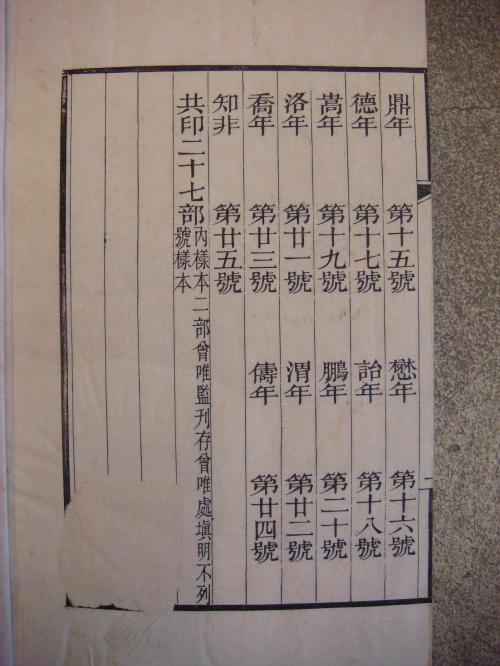 鼎年 第十五號 懋年 第十六號
德年 第十七號 詒年 第十八號
嵩年 第十九號 鵬年 第二十號
洛年 第廿一號 渭年 第廿二號
喬年 第廿三號 儔年 第廿四號
知非 第廿五號
共印二十七部內樣本二部曾唯監刊存曾唯處塡明不列
號樣本